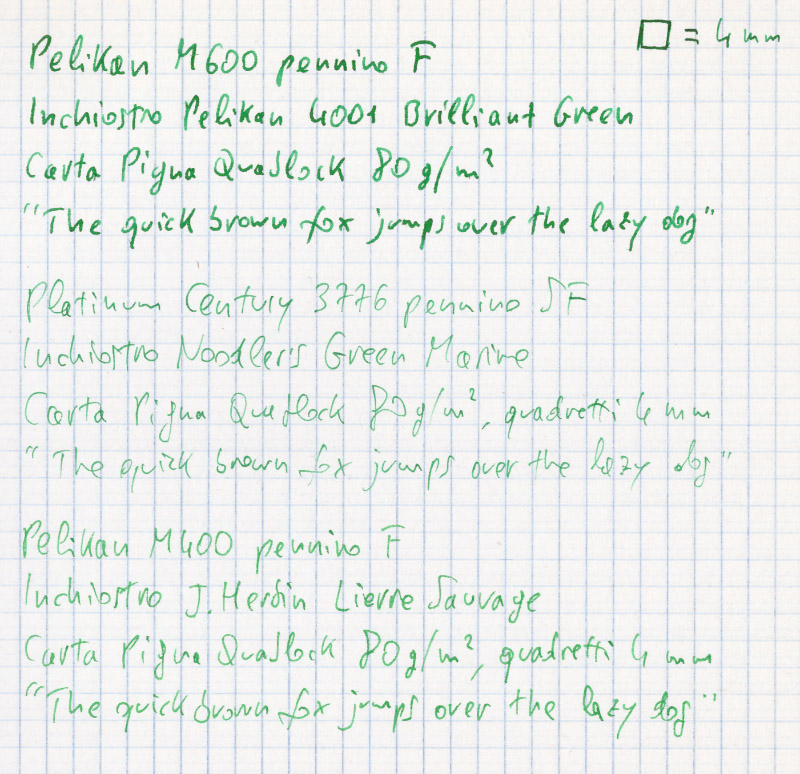 □ = 4 mm
Pelikan M600 pennino F
Inchiostro Pelikan 4001 Brilliant Green
Carta Pigna Quablock 80 g/m²
"The quick brown fox jumps over the lazy dog"
Platinum Century 3776 pennino SF
Inchiostro Noodler's Green Marine
Carta Pigna Quablock 80 g/m², quadretti 4 mm
"The quick brown fox jumps over the lazy dog"
Pelikan M400 pennino F
Inchiostro J. Herbin Lierre Sauvage
Carta Pigna Quablock 80 g/m², quadretti 4 mm
"The quick brown fox jumps over the lazy dog"